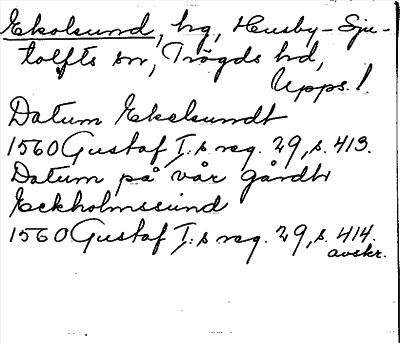 Ekolsund, hg, Husby-Sju-
tolfts sn, Trögds hd,
Upps. l.
Datum Ekelsundt
1560 Gustaf I:s reg. 29, s. 413.
Datum på vår gårdh
Eckholmssund
1560 Gustaf I:s reg. 29, s. 414.
avskr.